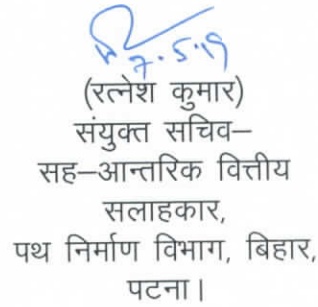 7.5.19
(रत्नेश कुमार)
संयुक्त सचिव–
सह–आन्तरिक वित्तीय
सलाहकार,
पथ निर्माण विभाग, बिहार,
पटना।